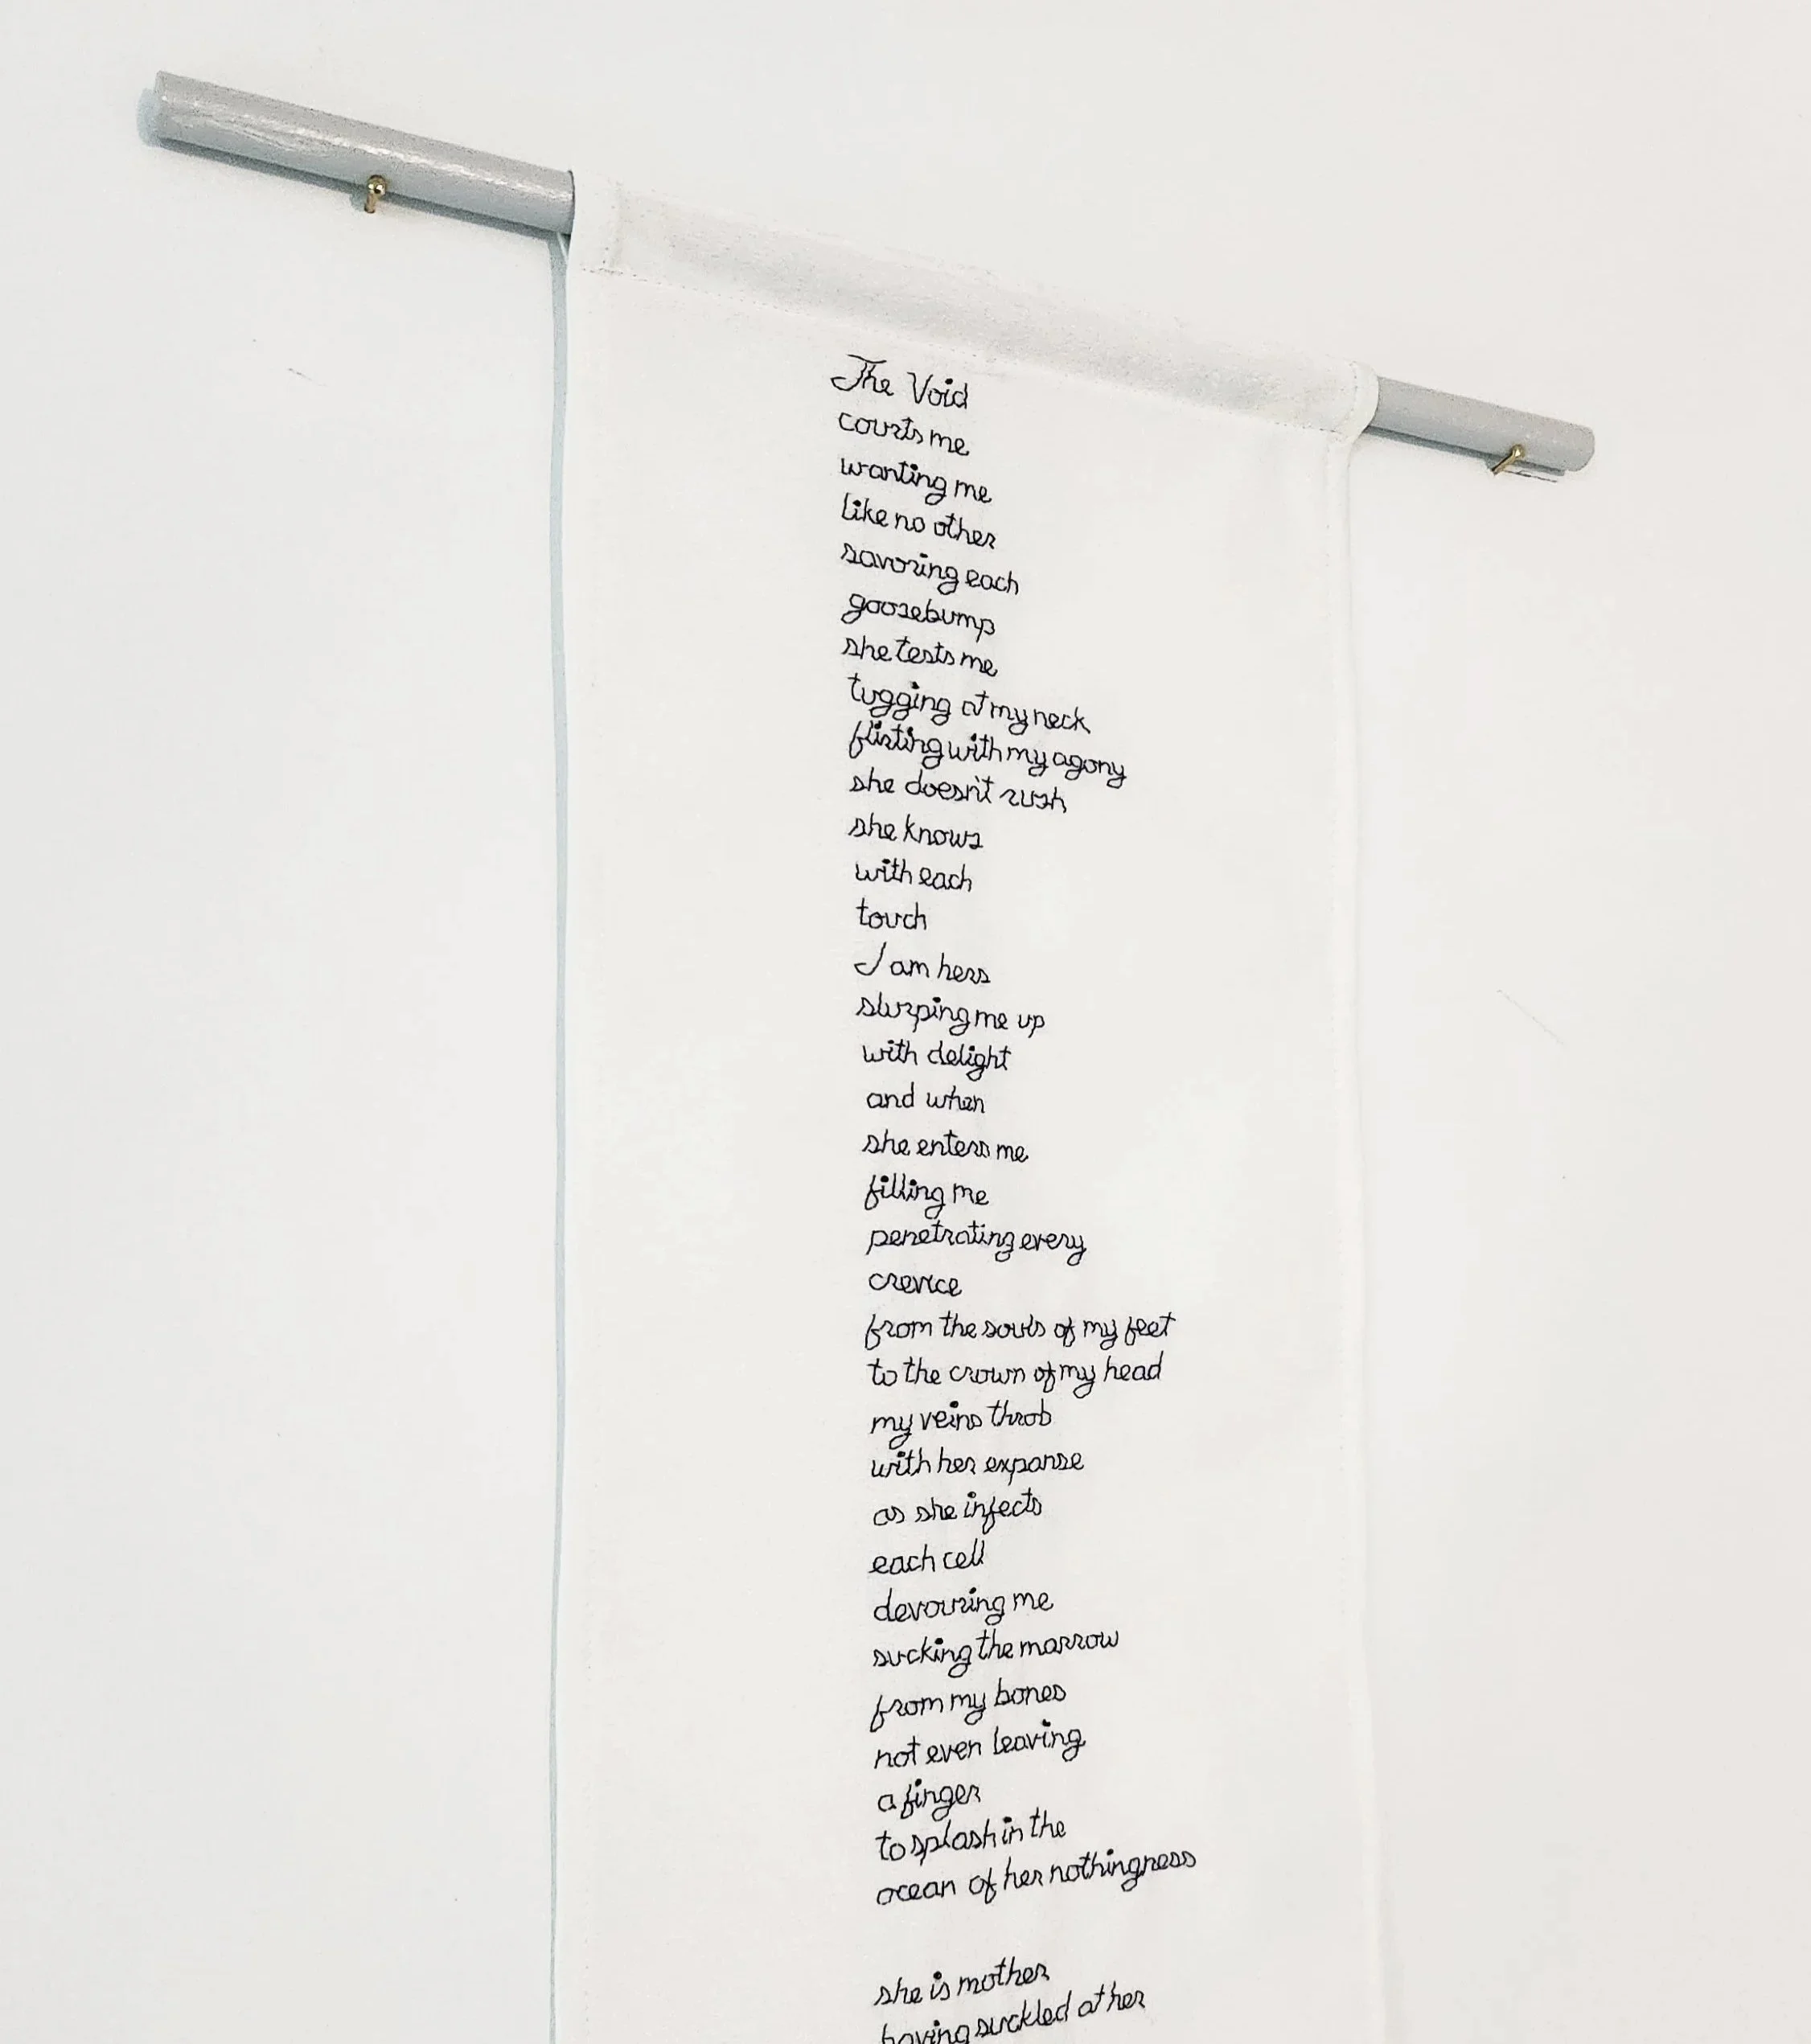 The Void
courts me
wanting me
like no other
savoring each
goosebump
she tests me
tugging at my neck
flirting with my agony
she doesn't rush
she knows
with each
touch
I am hers
slurping me up
with delight
and when
she enters me
filling me
penetrating every
crevice
from the souls of my feet
to the crown of my head
my veins throb
with her expanse
as she infects
each cell
devouring me
sucking the marrow
from my bones
not even leaving
a finger
to splash in the
ocean of her nothingness
she is mother
having suckled at her